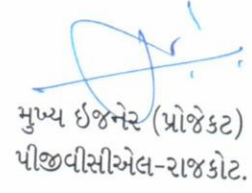 મુખ્ય ઇજનેર (પ્રોજેકટ)
પીજીવીસીએલ-રાજકોટ.